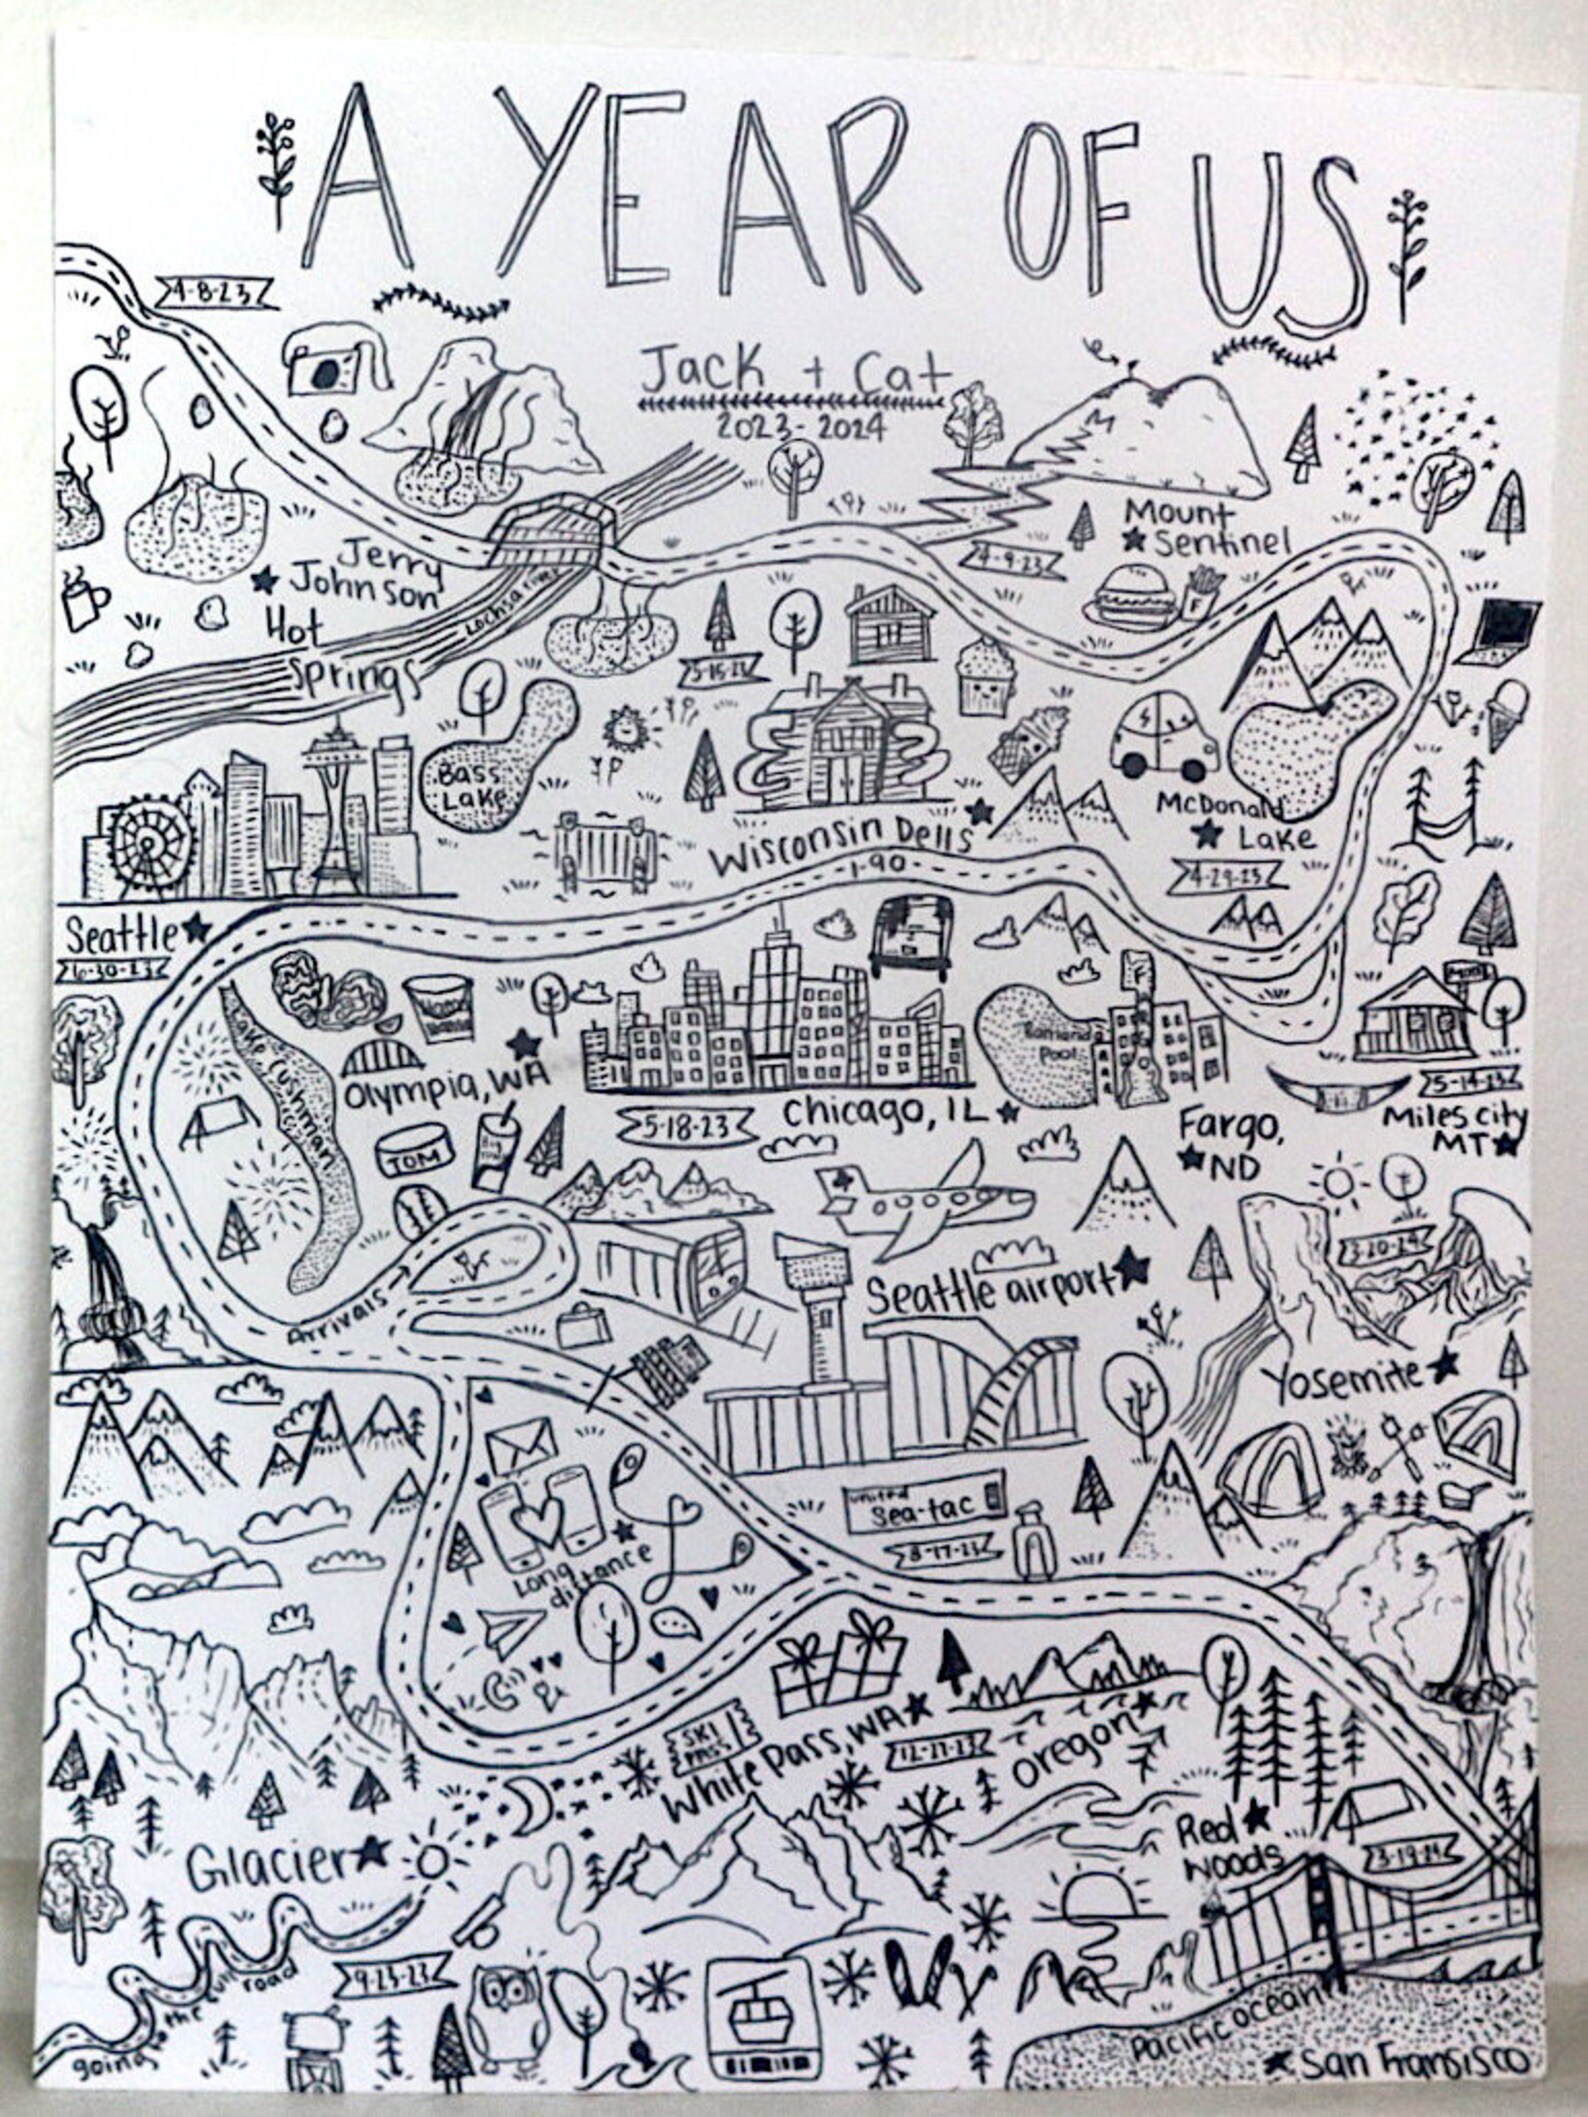 A YEAR OF US
4-8-23
Jack + Cat
2023-2024
Mount
Sentinel
4-9-23
Jerry
Johnson
Hot
Springs
Lochsa river
F
5-15-23
Bass
Lake
Wisconsin Dells
I-90
McDonald
Lake
4-29-23
Seattle
10-30-23
Lake Cushman
Olympia, WA
TOM
5-18-23
Chicago, IL
Pool
Fargo,
ND
5-14-23
Miles city
MT
Arrivals
Seattle airport
3-20-24
Yosemite
united
Sea-tac
8-17-23
Long
distance
SKI
PASS
White Pass, WA
12-27-23
Oregon
Red
Woods
3-19-24
Glacier
9-23-23
going to the sun road
Pacific ocean
San Fransisco